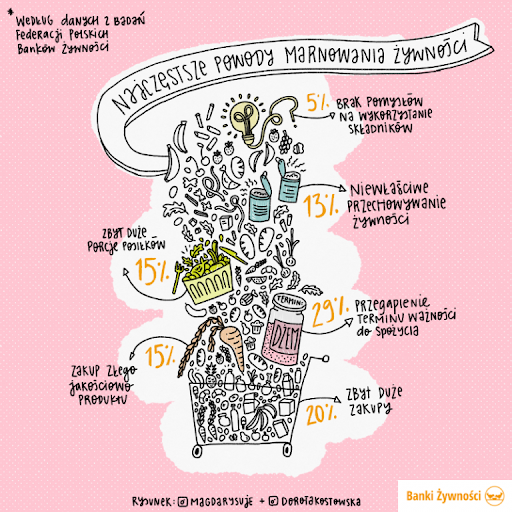 * WEDŁUG DANYCH Z BADAŃ
FEDERACJI POLSKICH
BANKÓW ŻYWNOŚCI
NAJCZĘSTSZE POWODY MARNOWANIA ŻYWNOŚCI
5% BRAK POMYSŁÓW
NA WYKORZYSTANIE
SKŁADNIKÓW
13% NIEWŁAŚCIWE
PRZECHOWYWANIE
ŻYWNOŚCI
ZBYT DUŻE
PORCJE POSIŁKÓW
15%
TERMIN:
DŻEM
29% PRZEGAPIENIE
TERMINU WAŻNOŚCI
DO SPOŻYCIA
15%
ZAKUP ZŁEGO
JAKOŚCIOWO
PRODUKTU
20% ZBYT DUŻE
ZAKUPY
RYSUNEK: MAGDARYSUJE + DOROTAKOSTOWSKA
Banki Żywności